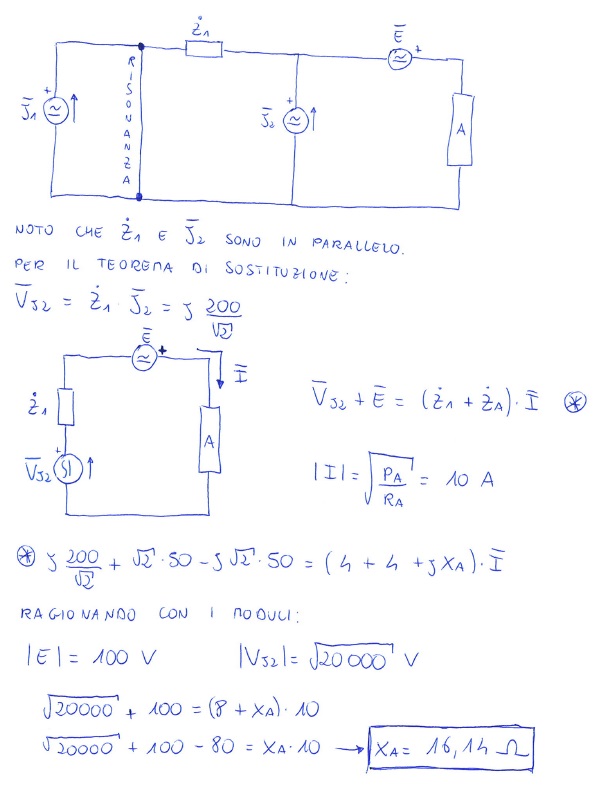 Ż1
Ē
+
+
J̄1
RISONANZA
+
J̄2
A
NOTO CHE Ż1 E J̄2 SONO IN PARALLELO.
PER IL TEOREMA DI SOSTITUZIONE:
V̄J2 = Ż1 · J̄2 = j 200/√2
Ē
+
Ī
Ż1
A
+
V̄J2
SI
V̄J2 + Ē = (Ż1 + ŻA) · Ī ⊛
|I| = √(PA/RA) = 10 A
⊛ j 200/√2 + √2 · 50 - j √2 · 50 = (4 + 4 + jXA) · Ī
RAGIONANDO CON I MODULI:
|E| = 100 V |VJ2| = √20000 V
√20000 + 100 = (8 + XA) · 10
√20000 + 100 - 80 = XA · 10 → XA = 16,14 Ω